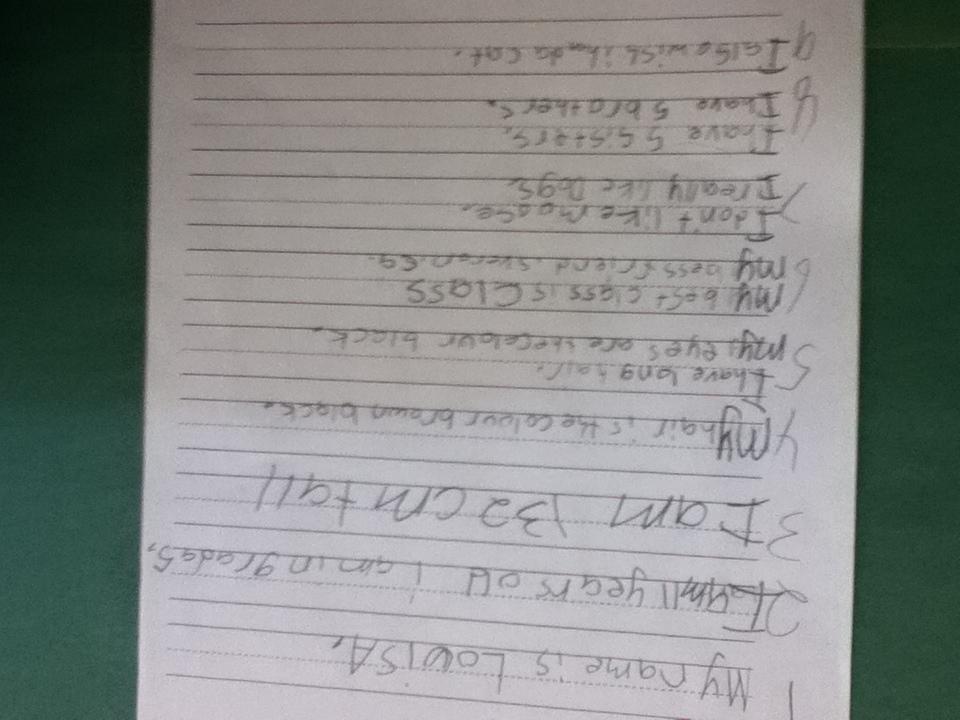 1 My name is LouiSA.
2 I am 11 years old I am in grade 5.
3 I am 132 cm tall
4 My hair is the colour brown black.
I have long hair.
5 my eyes are the colour black.
my best class is Class
6 my bess friend is
I don't like mouse.
7 I really like Dogs.
I have 5 sistrs.
8 I have 5 brothers.
9 I also wish i had a cat.